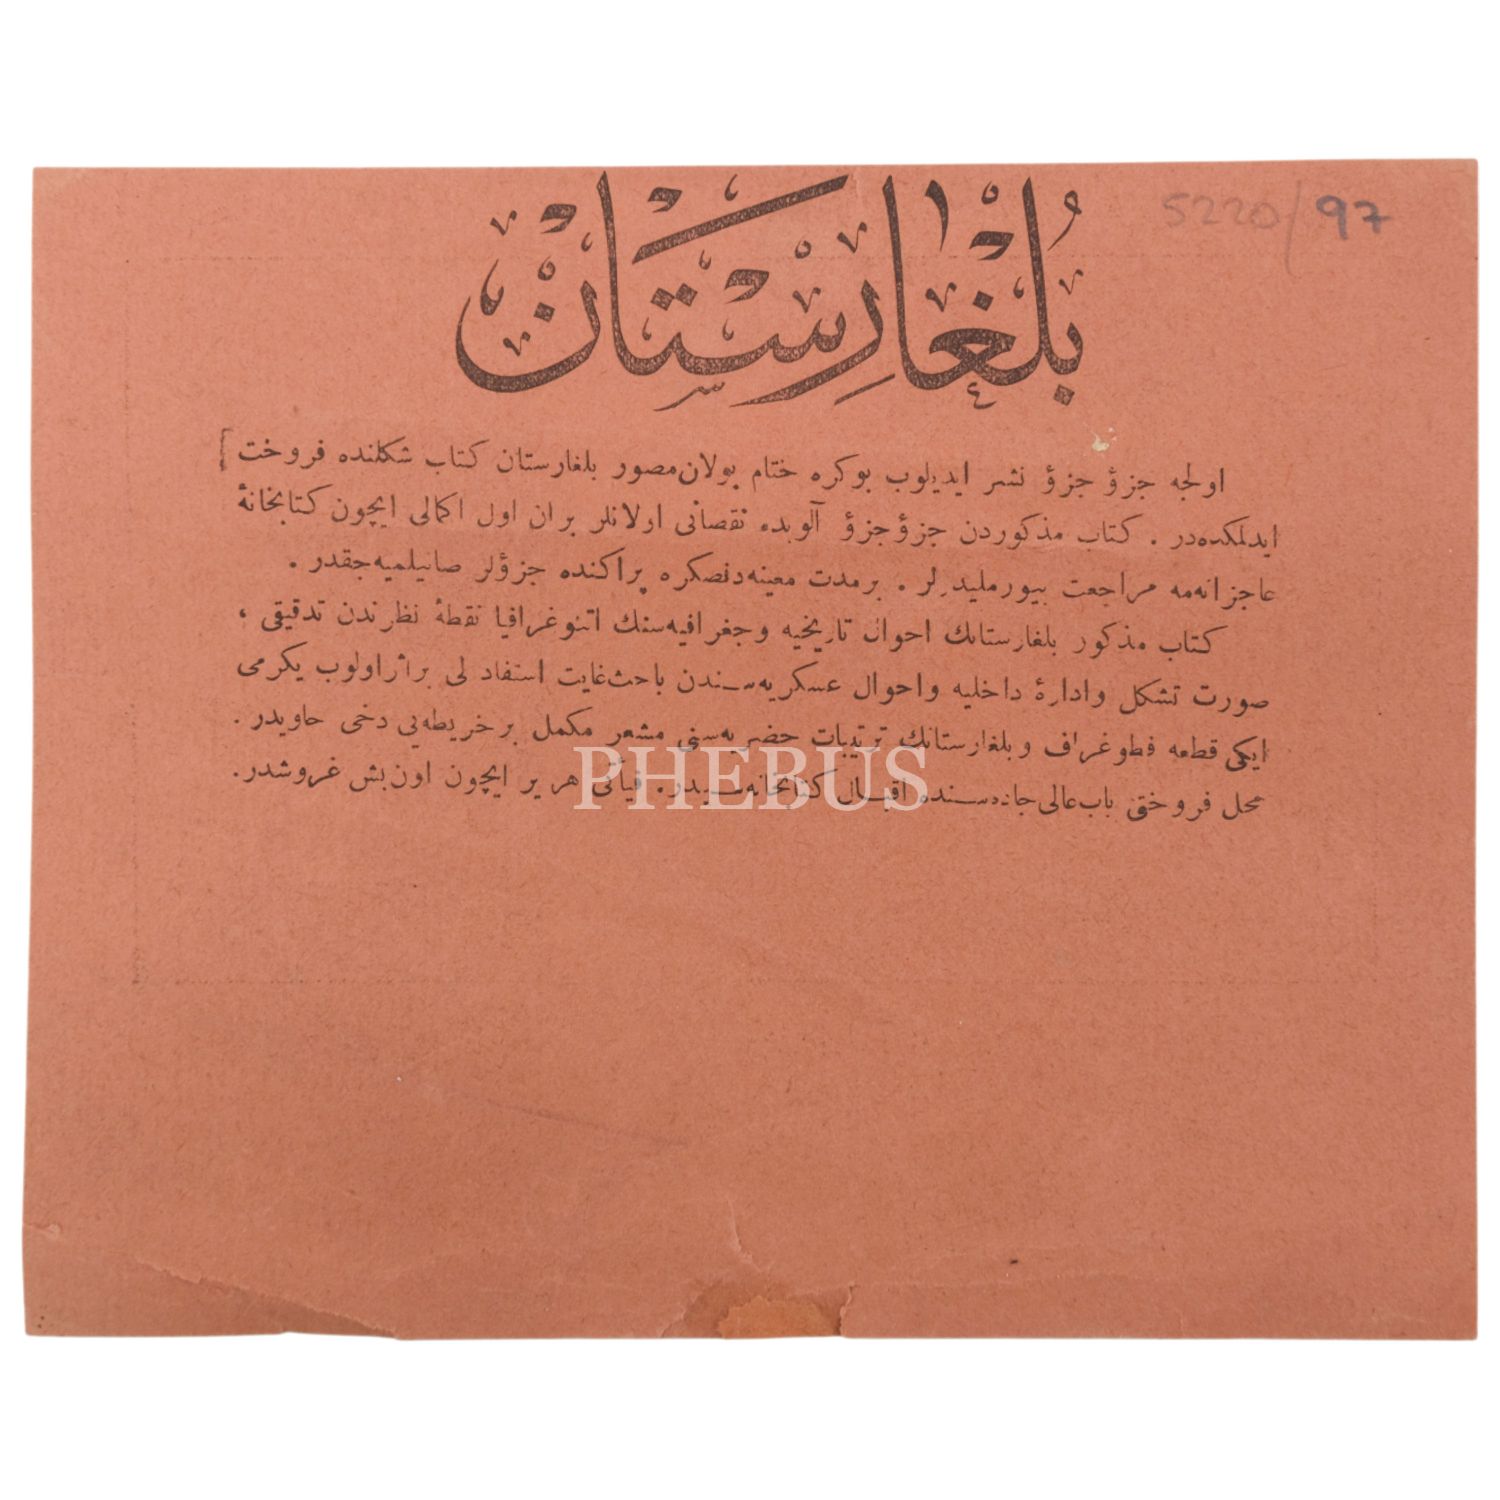 5220/97
بلغارستان
اولجه جزؤ جزؤ نشر ايديلوب بوكره ختام بولان مصور بلغارستان كتاب شكلنده فروخت
ايدلمكده در . كتاب مذكوردن جزؤ جزؤ آلوبده نقصانى اولانلر بران اول اكمالى ايچون كتابخانۀ
عاجزانه مه مراجعت بيورمليدرلر . برمدت معينه دنصكره پراكنده جزؤلر صاتيلميه جقدر .
كتاب مذكور بلغارستانك احوال تاريخيه وجغرافيه سنك اتنوغرافيا نقطۀ نظرندن تدقيقى ،
صورت تشكل وادارۀ داخليه واحوال عسكريه سندن باحث غايت استفاده لى براثر اولوب يكرمى
ايكى قطعه فطوغراف و بلغارستانك ترتيبات حضريه سنى مشعر مكمل برخريطه يى دخى حاويدر .
محل فروختى باب عالى جاده سنده اقبال كتابخانه سيدر . فيأتى هر ير ايچون اون بش غروشدر .
PHEBUS